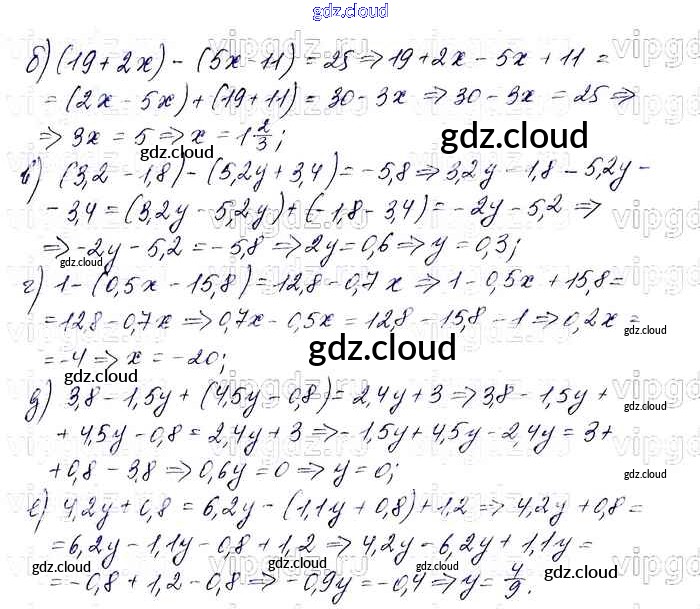 gdz.cloud
б) (19+2x) - (5x-11) = 25 ⇒ 19+2x - 5x + 11 =
= (2x - 5x) + (19+11) = 30 - 3x ⇒ 30 - 3x = 25 ⇒
⇒ 3x = 5 ⇒ x = 1 2/3;
gdz.cloud
gdz.cloud
в) (3,2 - 1,8) - (5,2y + 3,4) = -5,8 ⇒ 3,2y - 1,8 - 5,2y -
- 3,4 = (3,2y - 5,2y) + (-1,8 - 3,4) = -2y - 5,2 ⇒
⇒ -2y - 5,2 = -5,8 ⇒ 2y = 0,6 ⇒ y = 0,3;
gdz.cloud
г) 1 - (0,5x - 15,8) = 12,8 - 0,7x ⇒ 1 - 0,5x + 15,8 =
= 12,8 - 0,7x ⇒ 0,7x - 0,5x = 12,8 - 15,8 - 1 ⇒ 0,2x =
gdz.cloud
= -4 ⇒ x = -20;
gdz.cloud
gdz.cloud
д) 3,8 - 1,5y + (4,5y - 0,8) = 2,4y + 3 ⇒ 3,8 - 1,5y +
gdz.cloud
+ 4,5y - 0,8 = 2,4y + 3 ⇒ -1,5y + 4,5y - 2,4y = 3 +
+ 0,8 - 3,8 ⇒ 0,6y = 0 ⇒ y = 0;
gdz.cloud
е) 4,2y + 0,8 = 6,2y - (1,1y + 0,8) + 1,2 ⇒ 4,2y + 0,8 =
= 6,2y - 1,1y - 0,8 + 1,2 ⇒ 4,2y - 6,2y + 1,1y =
= -0,8 + 1,2 - 0,8 ⇒ -0,9y = -0,4 ⇒ y = 4/9.
gdz.cloud
gdz.cloud
gdz.cloud